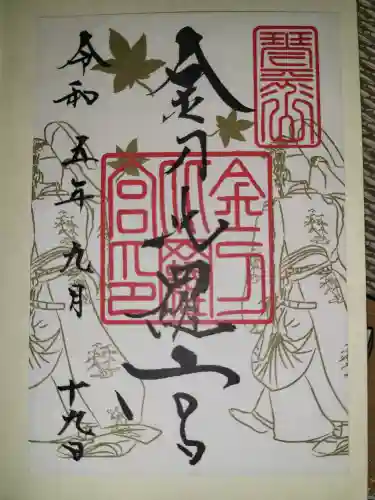 琴平山
金刀比羅宮
金刀
比羅
宮印
令和五年九月十九日